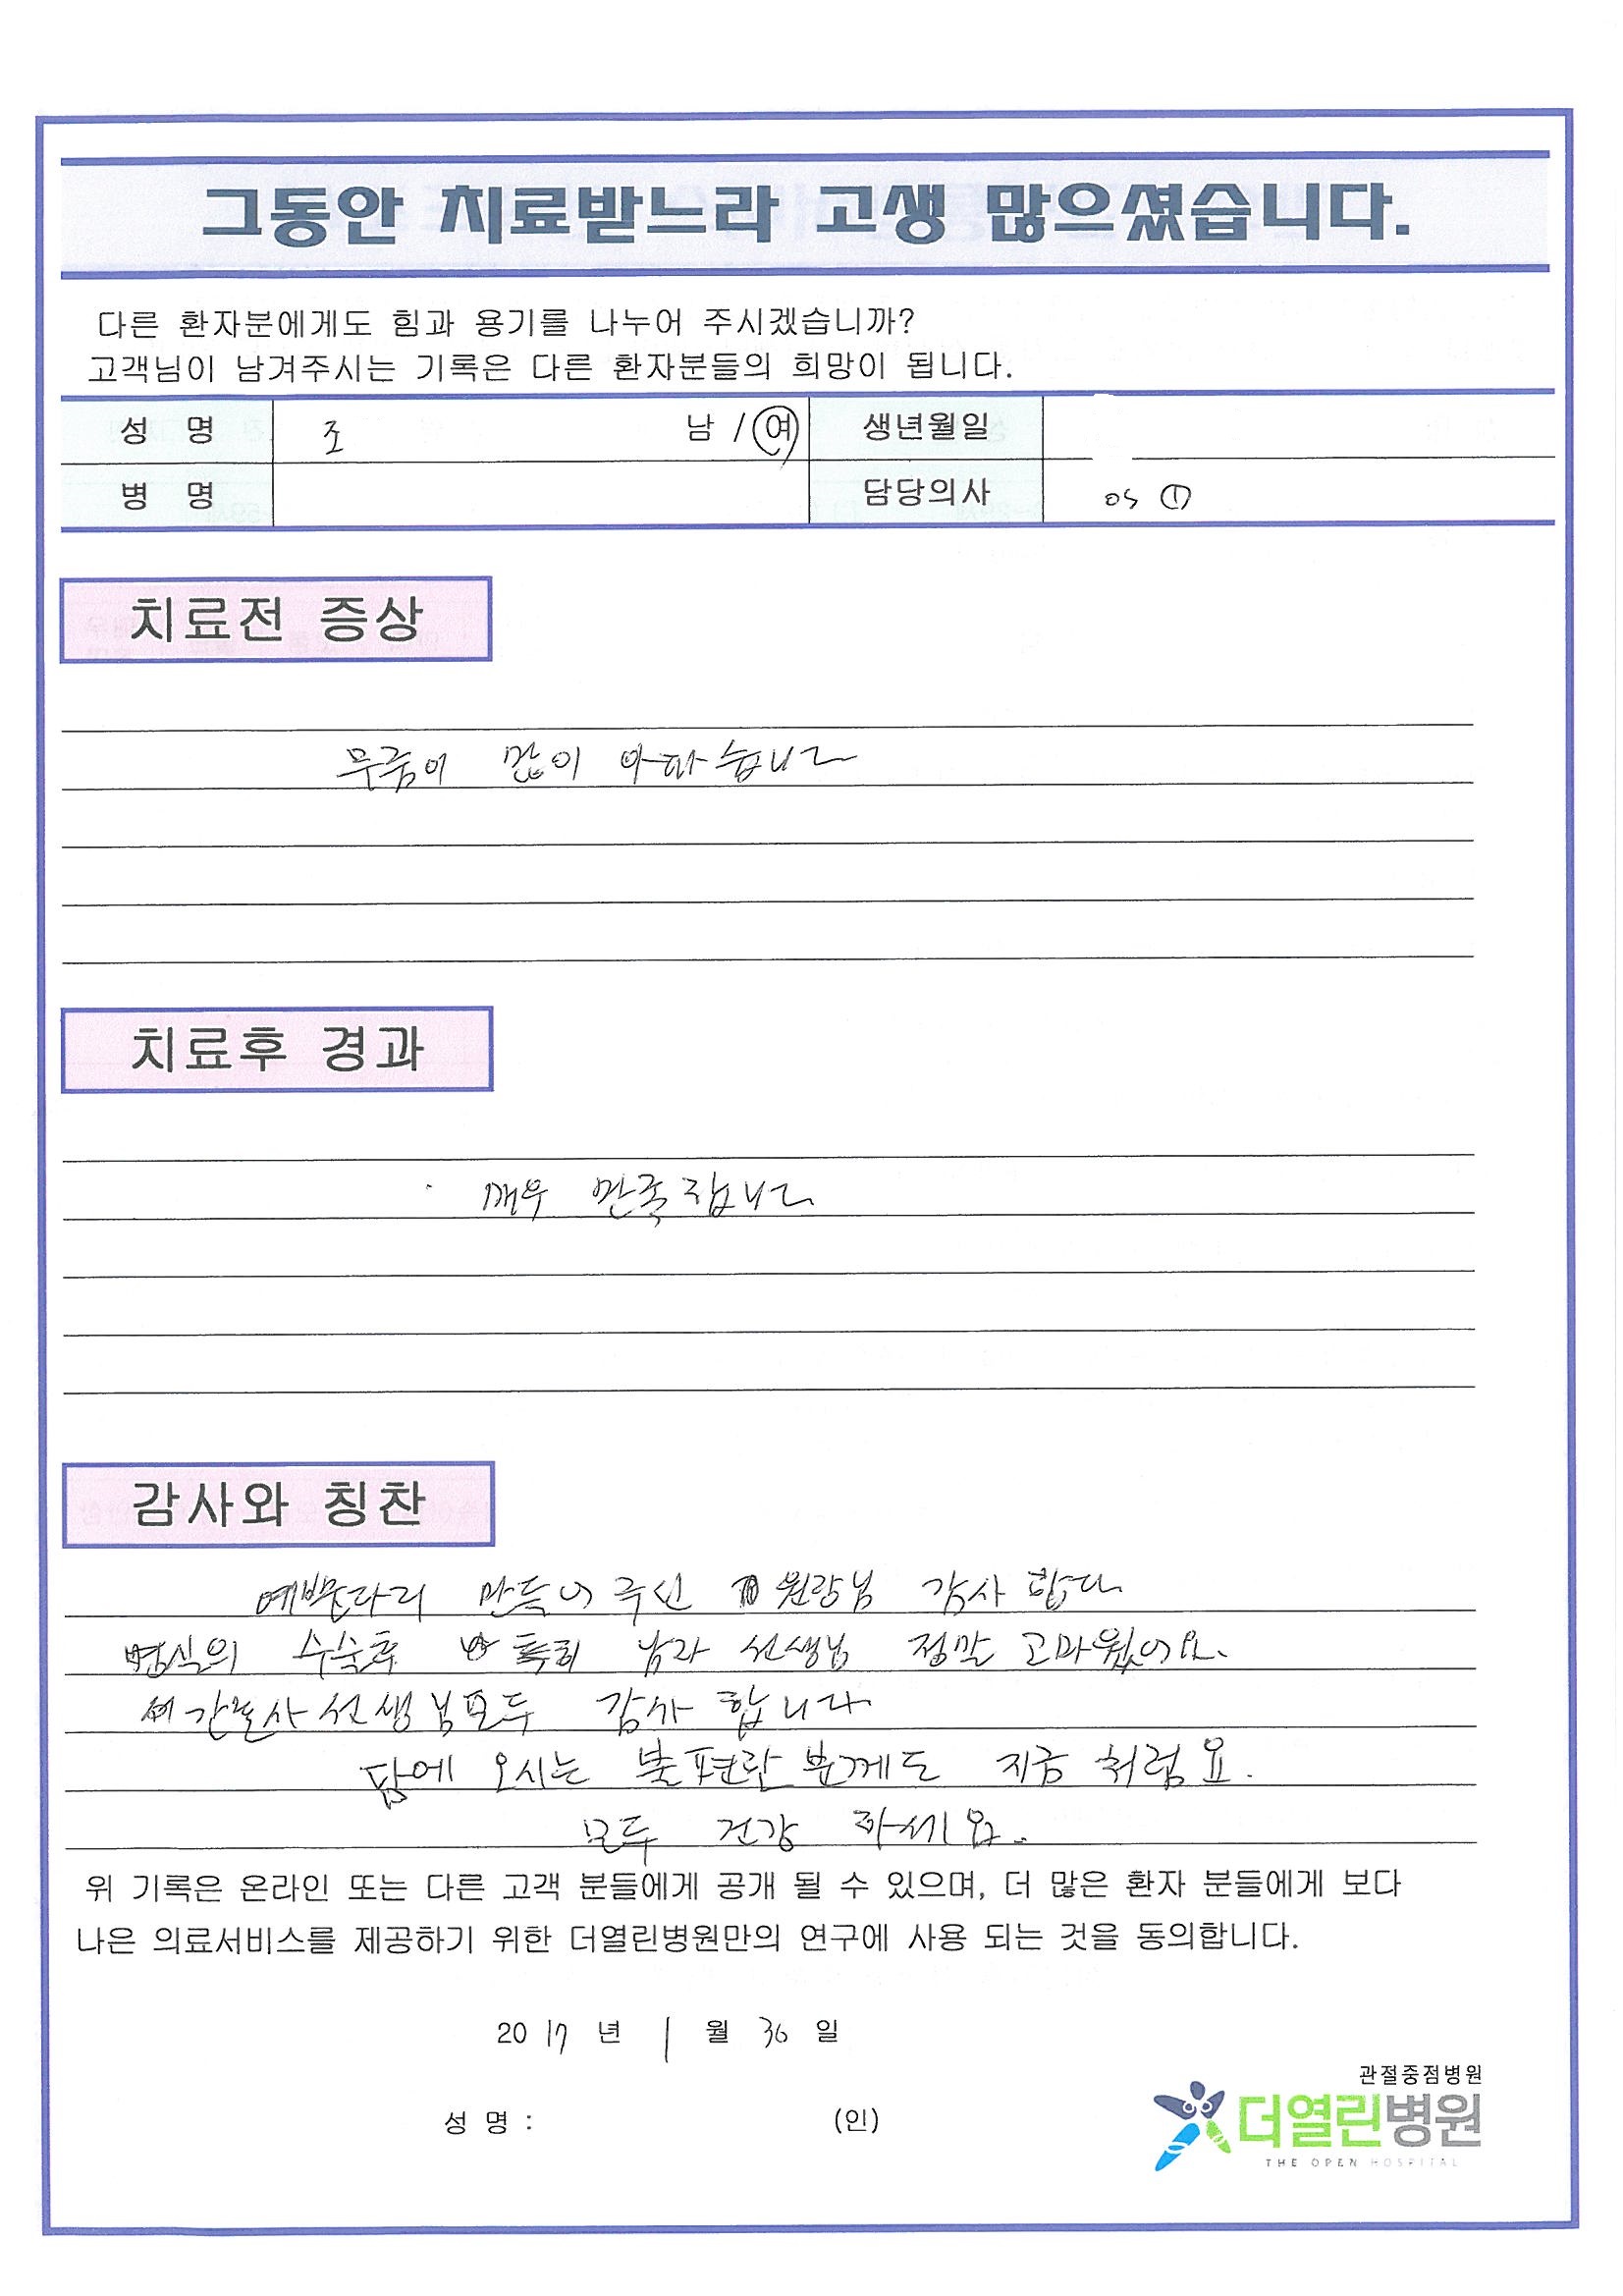 그동안 치료받느라 고생 많으셨습니다.
다른 환자분에게도 힘과 용기를 나누어 주시겠습니까?
고객님이 남겨주시는 기록은 다른 환자분들의 희망이 됩니다.
성 명 조 남 / 여 생년월일
병 명 담당의사 OS ①
치료전 증상
무릎이 많이 아파습니다
치료후 경과
매우 만족합니다
감사와 칭찬
예쁜다리 만들어 주신 원장님 감사 합다
수술후 남자 선생님 정말 고마웠어요.
간호사 선생님모두 감사 합니다
담에 오시는 불편한 분께도 지금 처럼요.
모두 건강 하세요.
위 기록은 온라인 또는 다른 고객 분들에게 공개 될 수 있으며, 더 많은 환자 분들에게 보다
나은 의료서비스를 제공하기 위한 더열린병원만의 연구에 사용 되는 것을 동의합니다.
2017 년 1 월 30 일
관절중점병원
성 명 : (인)
더열린병원
THE OPEN HOSPITAL